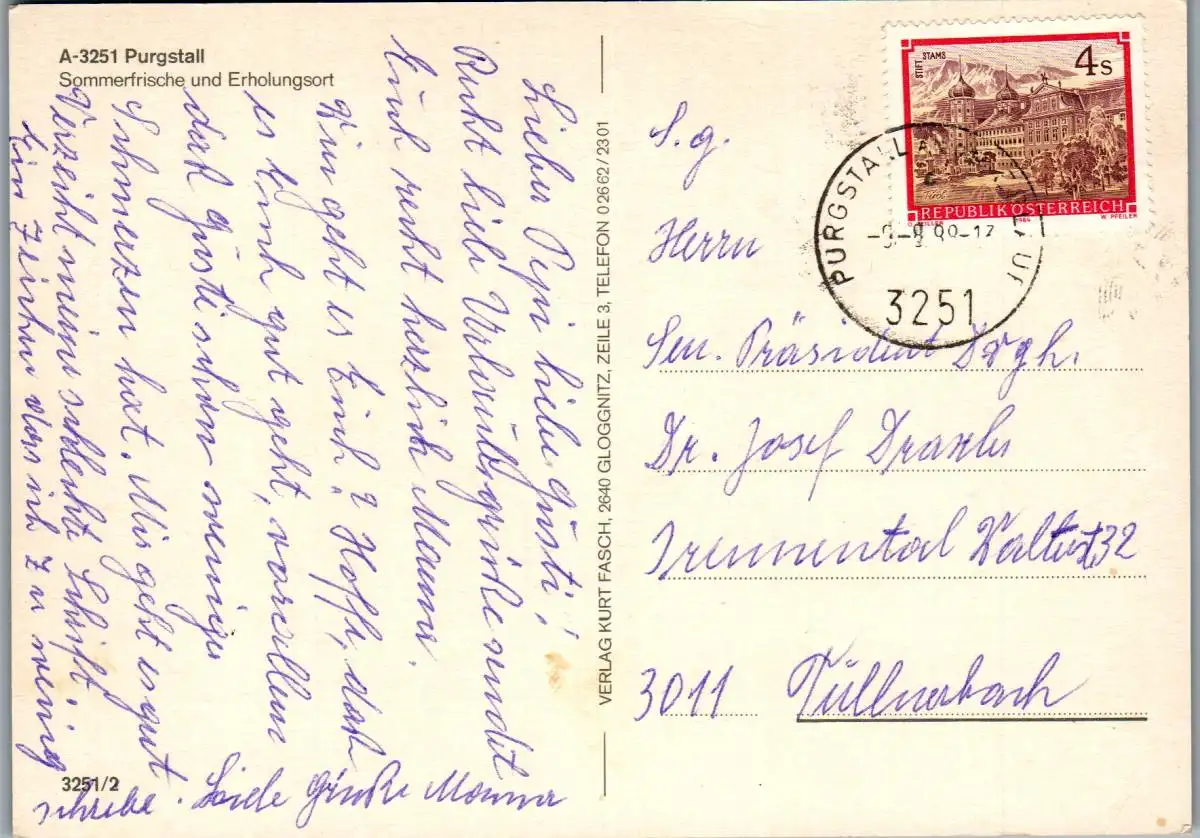 A-3251 Purgstall
Sommerfrische und Erholungsort
Lieber Pepi liebe Gusti!
Recht liebe Urlaubsgrüße sendet
Euch recht herzlich Mama.
Wie geht es Euch? Hoffe, daß
es Euch gut geht, vor allem
daß Gusti schon weniger
Schmerzen hat. Mir geht es gut
Verzeiht meine schlechte Schrift.
Ein Zeichen das ich zu wenig
schreibe. Liebe Grüße Mama
3251/2
VERLAG KURT FASCH, 2640 GLOGGNITZ, ZEILE 3, TELEFON 02662/2301
STIFT STAMS
4s
REPUBLIK ÖSTERREICH
1984
W. PFEILER
PURGSTALL
3251
S.g.
Herrn
Sen. Präsident
Dr. Josef Draxler
Irenental 32
3011 Tullnerbach